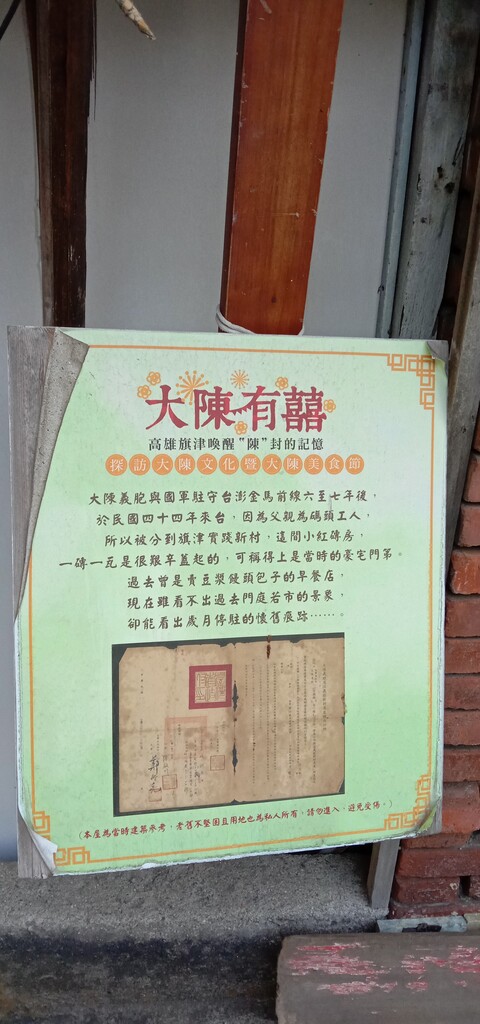 大陳有囍
高雄旗津喚醒"陳"封的記憶
探訪大陳文化暨大陳美食節
大陳義胞與國軍駐守台澎金馬前線六至七年後，
於民國四十四年來台，因為父親為碼頭工人，
所以被分到旗津實踐新村，這間小紅磚房，
一磚一瓦是很艱辛蓋起的，可稱得上是當時的豪宅門第。
過去曾是賣豆漿饅頭包子的早餐店，
現在雖看不出過去門庭若市的景象，
卻能看出歲月停駐的懷舊痕跡……。
（本屋為當時建築參考，老舊不堅固且用地也為私人所有，請勿進入，避免受傷。）